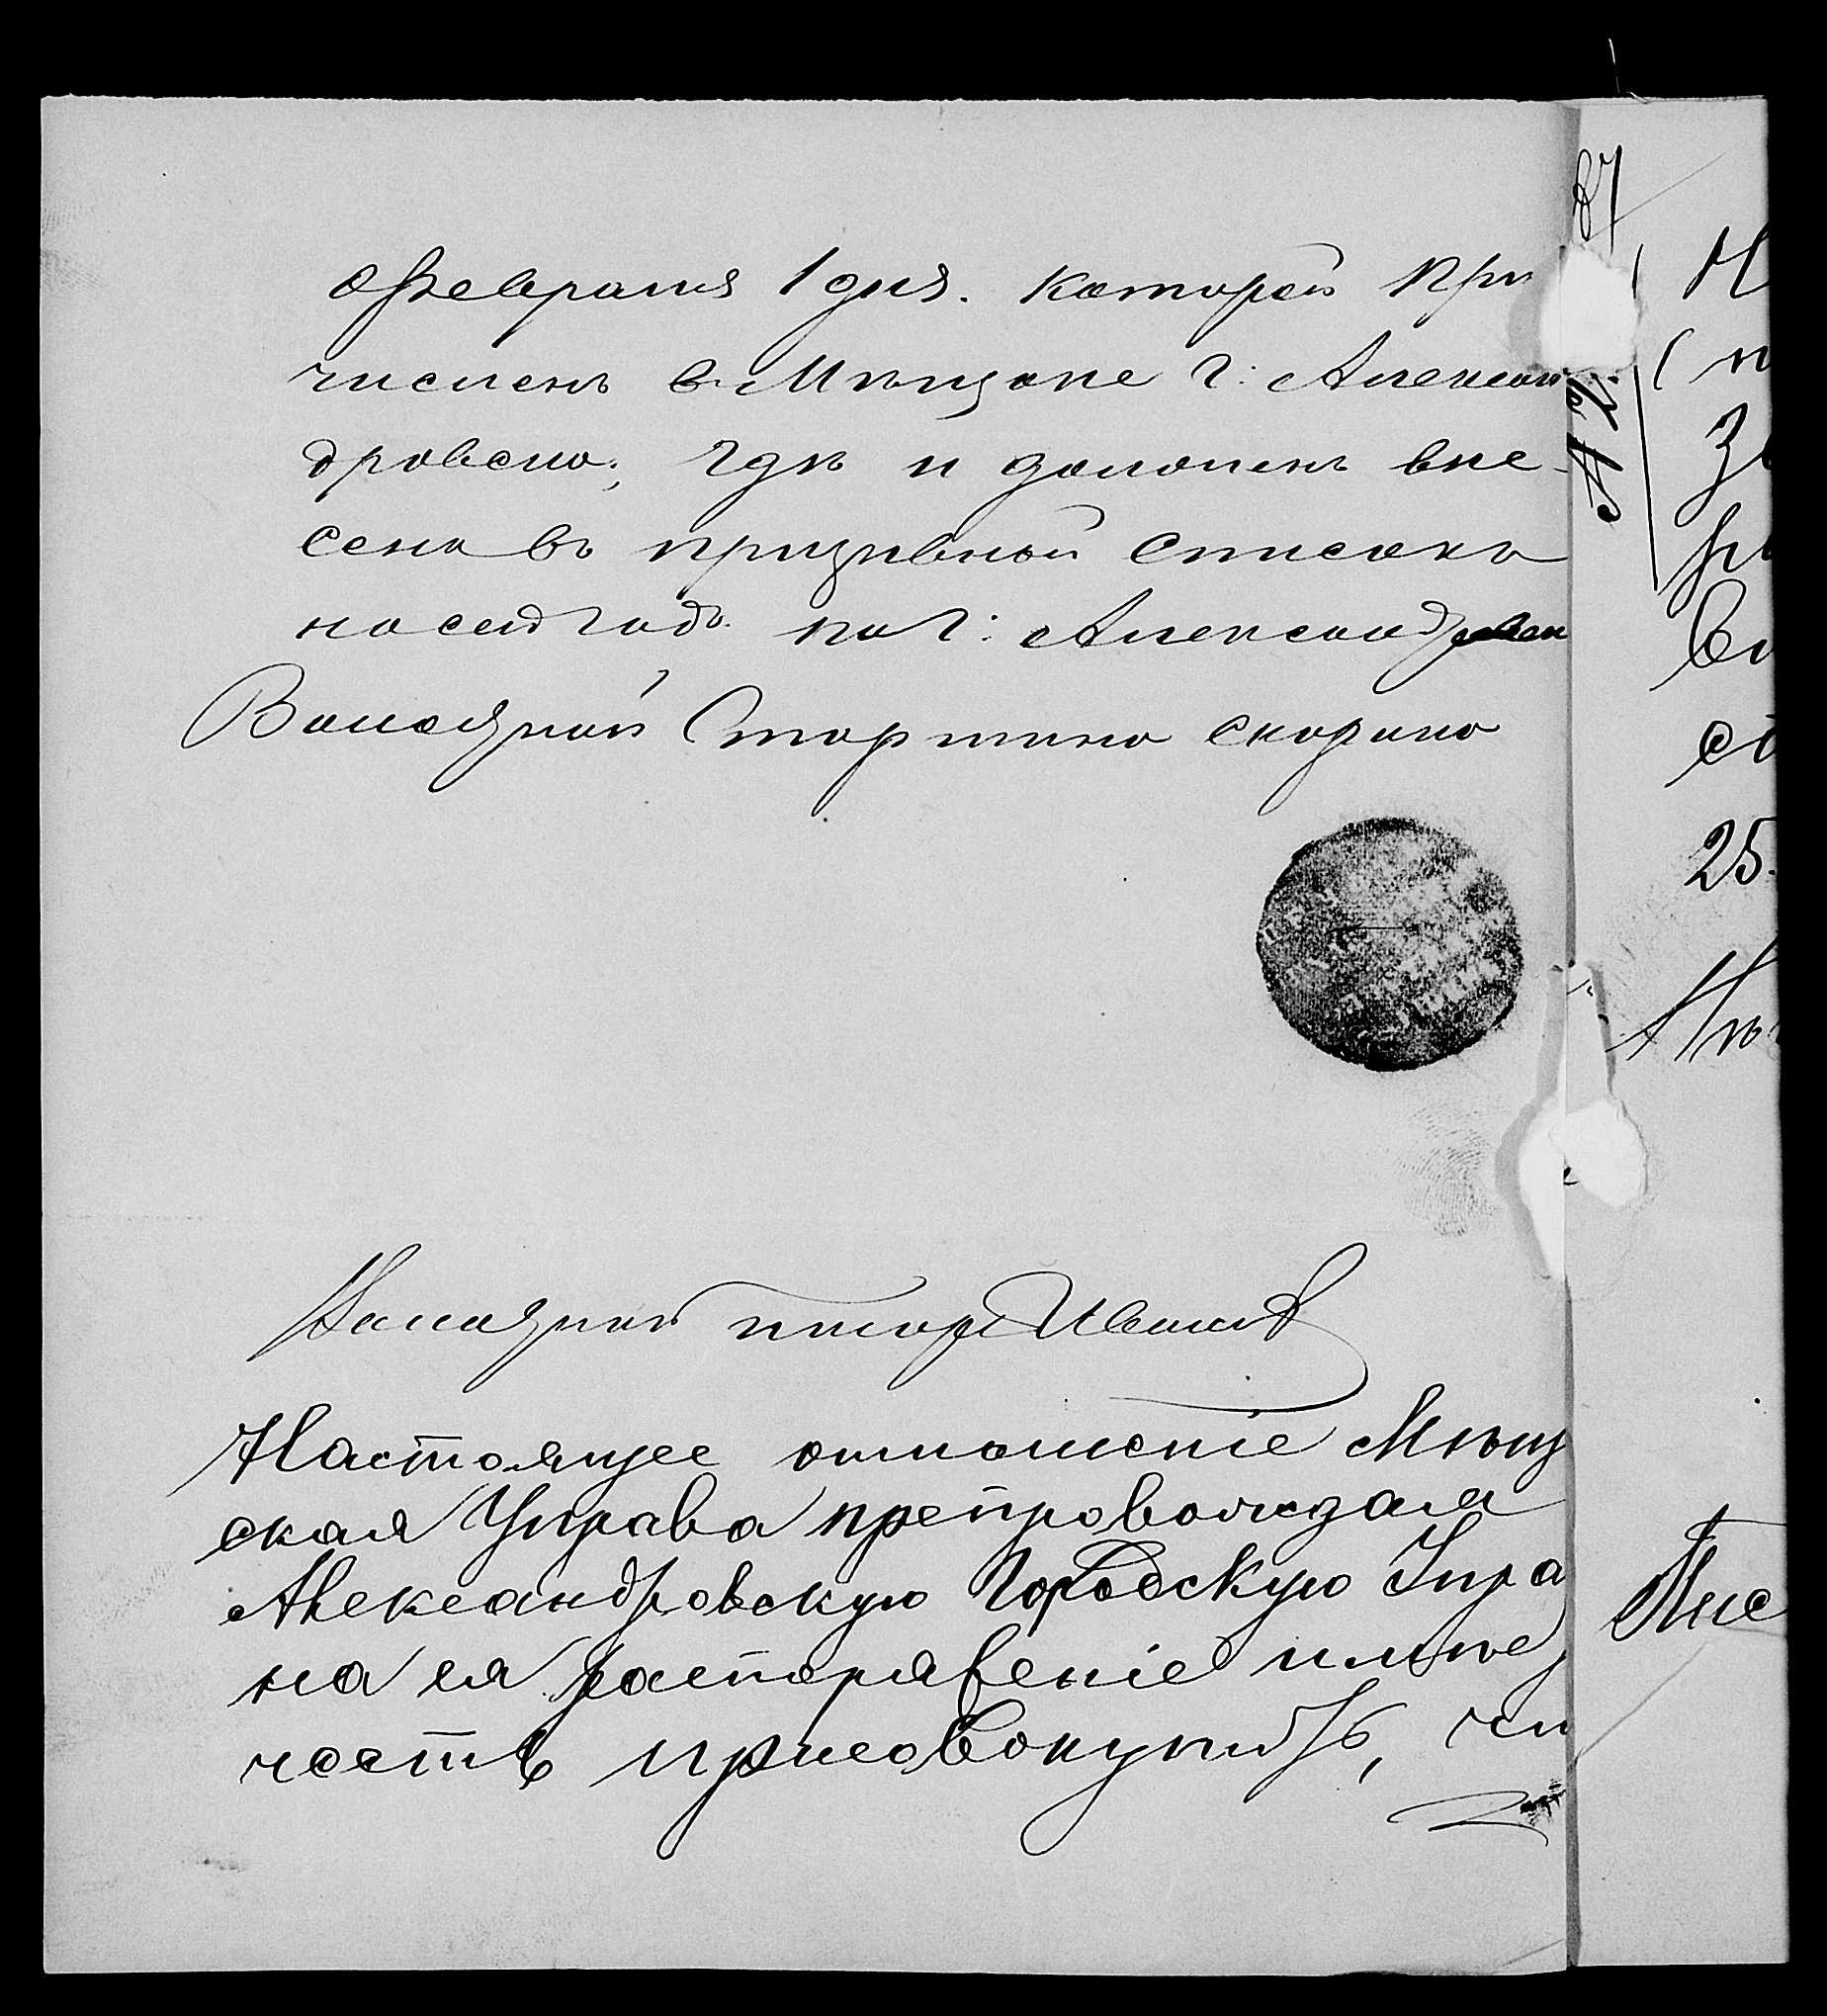 Февраля 1 дня. которой при
численъ в Мѣщане г: Алексан
дровска; гдѣ и долженъ вне-
сенъ въ призывной списокъ
на сей годъ. по г: Александровск
Волостной Старшина Скорина
Волостной писарь Иванов
Настоящее отношеніе Мѣщ
ская Управа препровождая
Александровскую Городскую Упра
на ея распоряженіе имѣе
честь присовокупить, чт
87
Н
25.